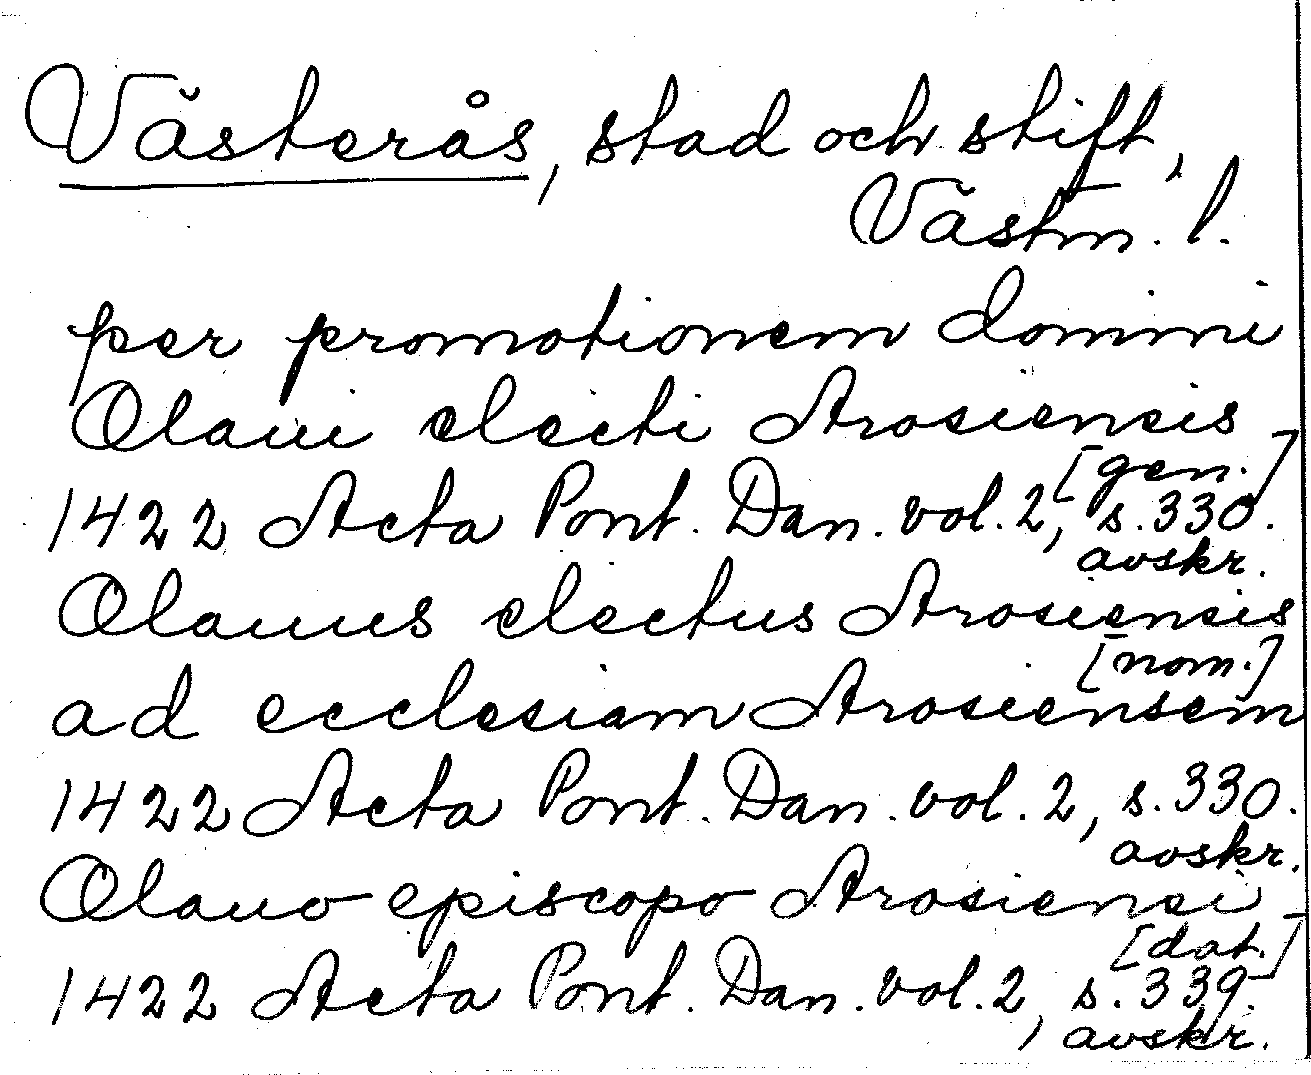 Västerås, stad och stift,
Västm. l.
per promotionem domini
Olaui electi Arosiensis
[gen.]
1422 Acta Pont. Dan. vol. 2, s. 330.
avskr.
Olauus electus Arosiensis
[nom.]
ad ecclesiam Arosiensem
1422 Acta Pont. Dan. vol. 2, s. 330.
avskr.
Olauo episcopo Arosiensi
[dat.]
1422 Acta Pont. Dan. vol. 2, s. 339.
avskr.